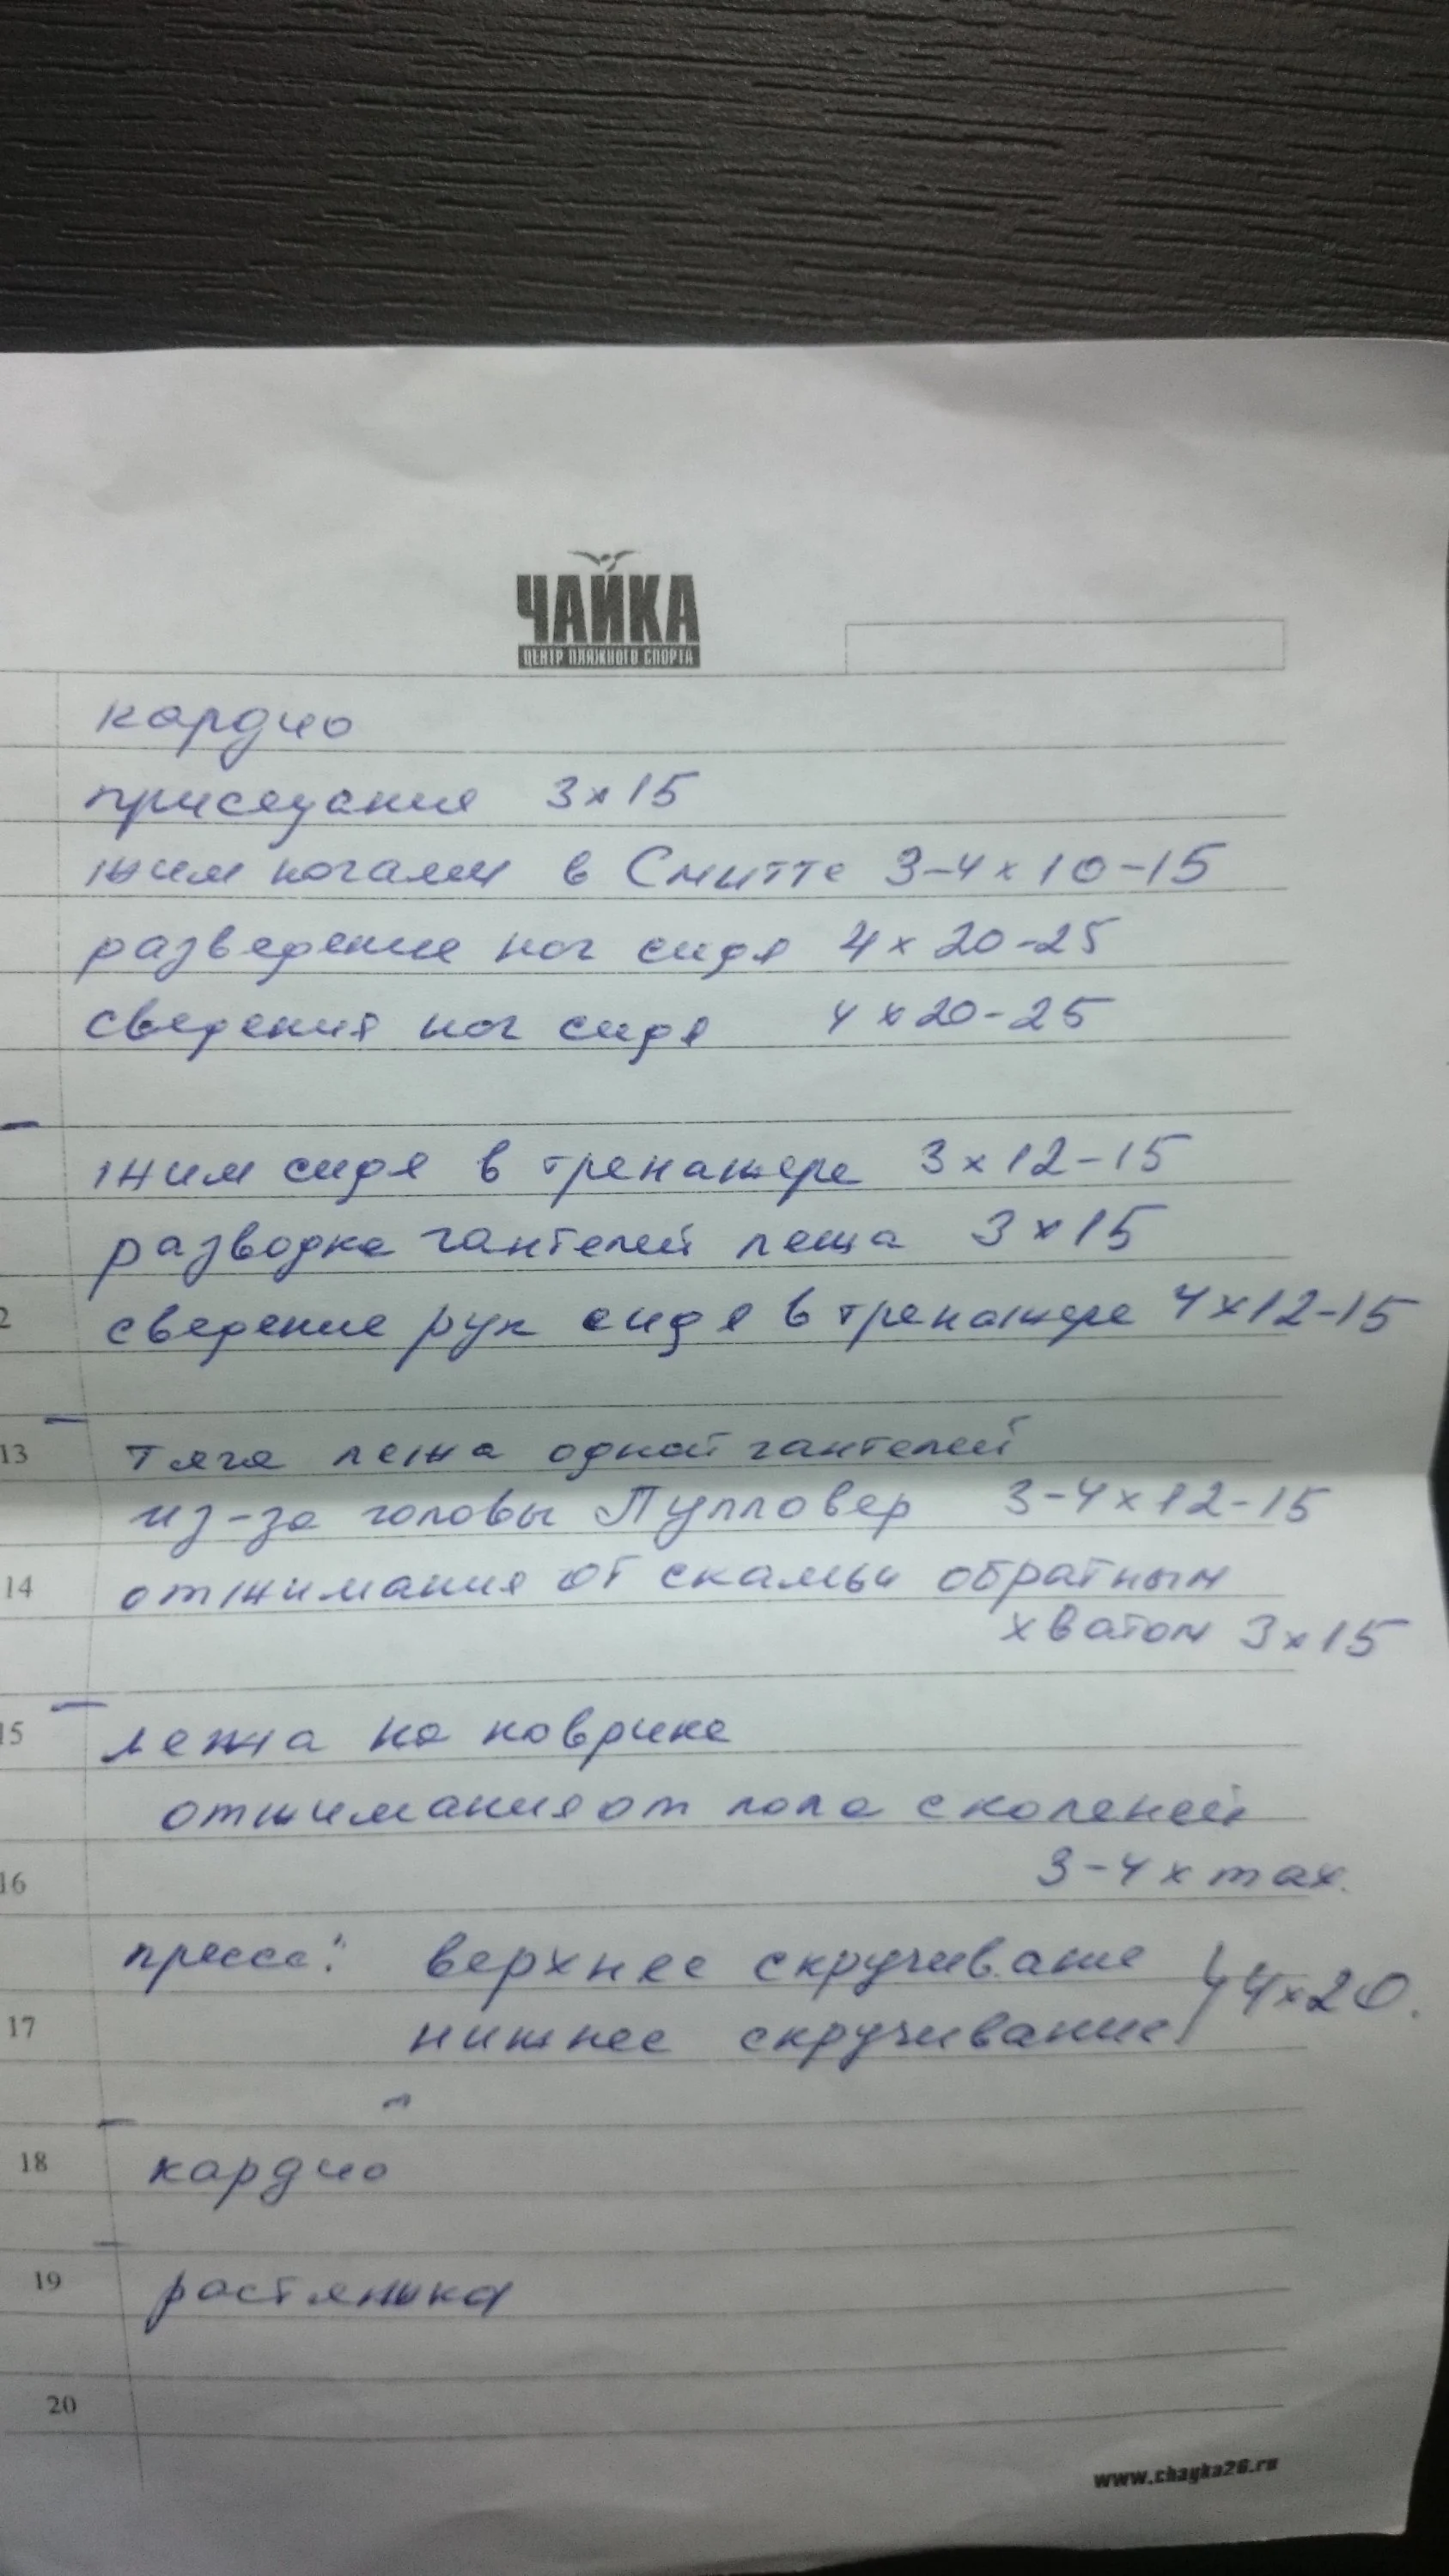 ЧАЙКА
ЦЕНТР ПЛЯЖНОГО СПОРТА
кардио
приседания 3x15
жим ногами в Смитте 3-4x10-15
разведение ног сидя 4x20-25
сведения ног сидя 4x20-25
жим сидя в тренажере 3x12-15
разводка гантелей лежа 3x15
2 сведение рук сидя в тренажере 4x12-15
13 тяга лежа одной гантелей
из-за головы Пулловер 3-4x12-15
14 отжимания от скамьи обратным
хватом 3x15
15 лежа на коврике
отжимания от пола с коленей
16 3-4x max.
пресс: верхнее скручивание
4x20.
17 нижнее скручивание
18 кардио
19 растяжка
20
www.chayka26.ru